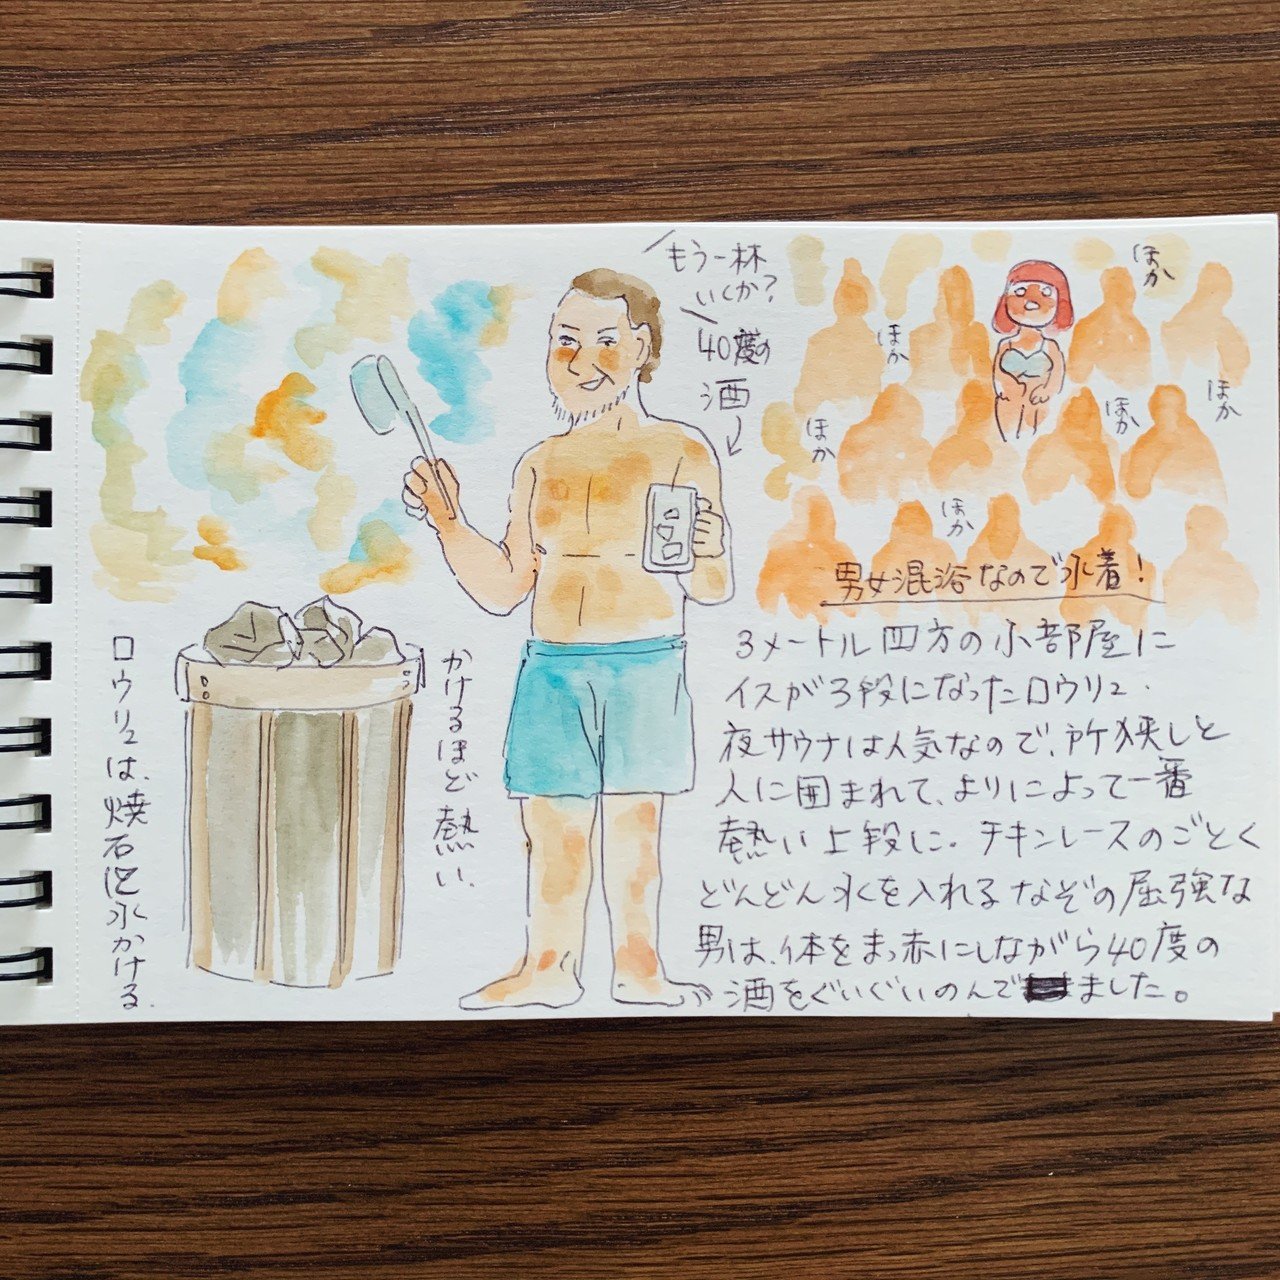 ロウリュは、焼石に水かける。
かけるほど熱い。
もう一杯
いくか?
40度の
酒
ほか
ほか
ほか
ほか
ほか
ほか
男女混浴なので水着!
3メートル四方の小部屋に
イスが3段になったロウリュ.
夜サウナは人気なので、所狭しと
人に囲まれて、よりによって一番
熱い上段に。チキンレースのごとく
どんどん水を入れるなぞの屈強な
男は、体をまっ赤にしながら40度の
酒をぐいぐいのんでました。